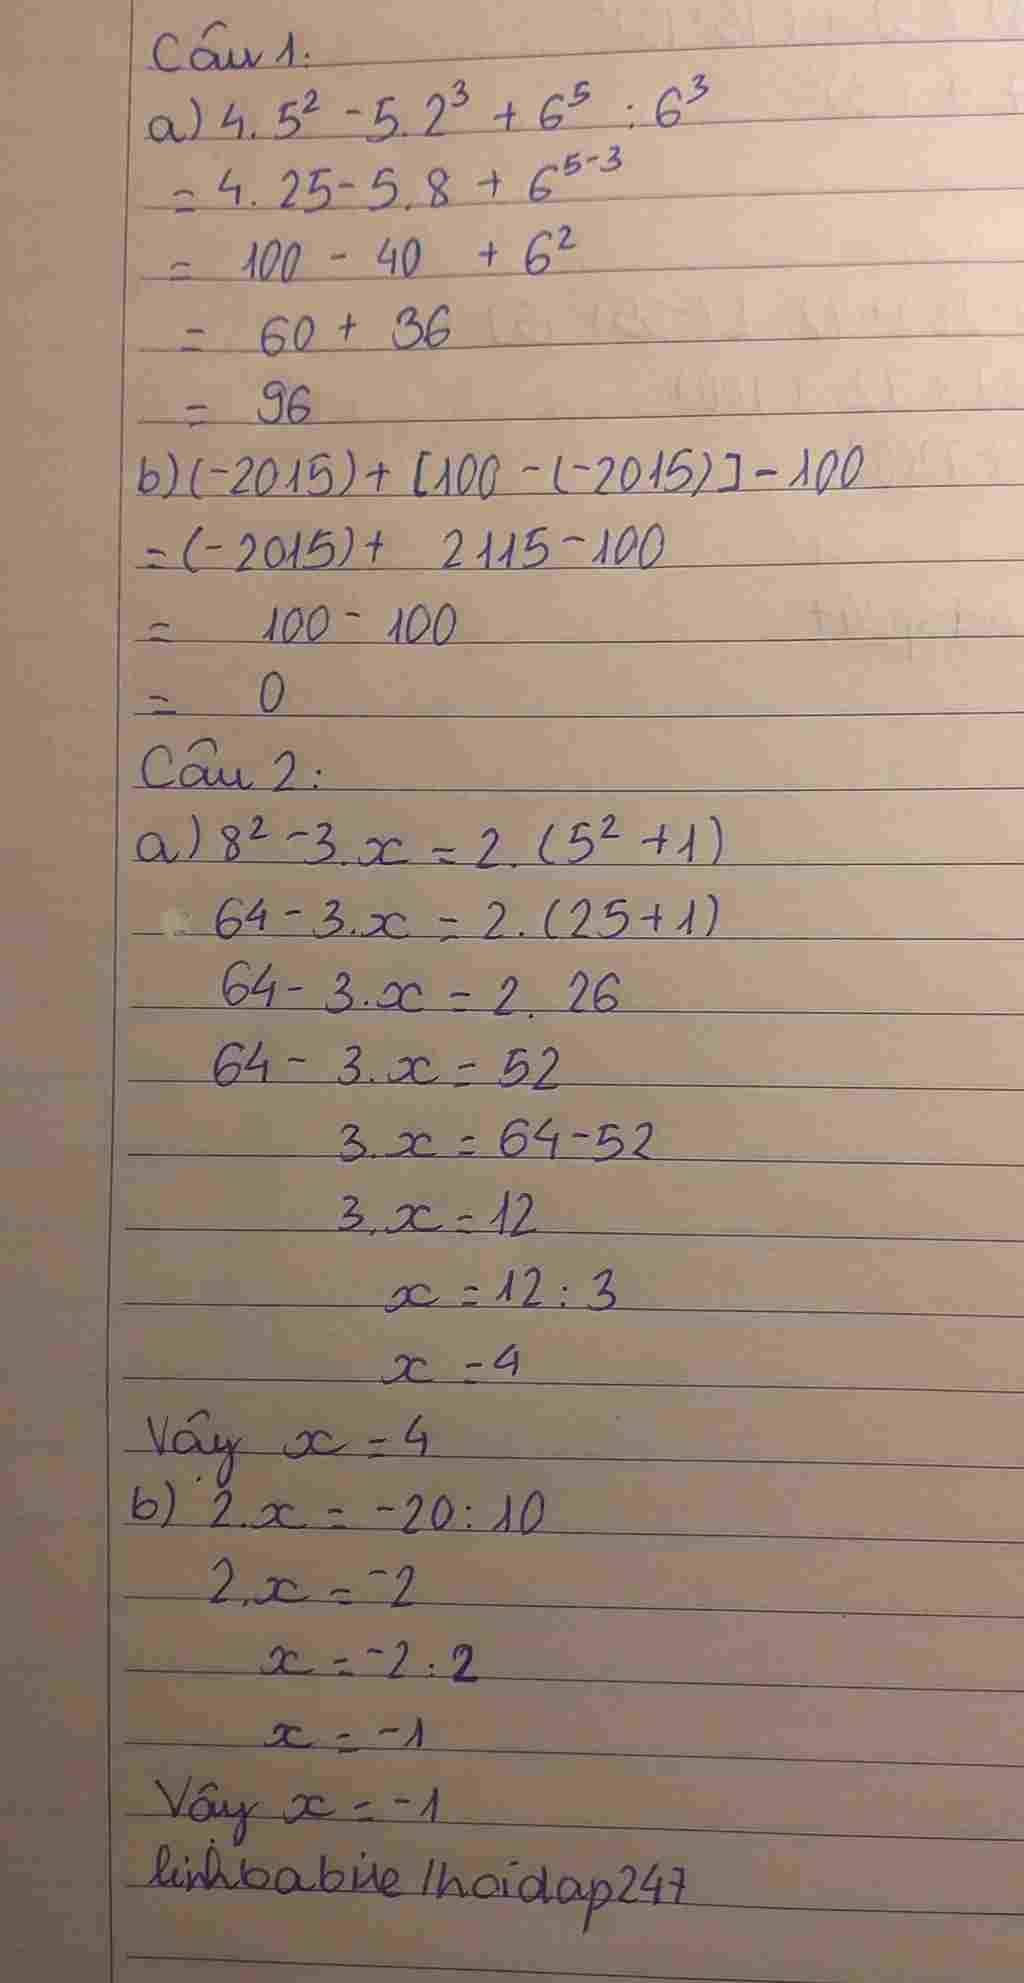 Câu 1:
a) 4. 5² - 5. 2³ + 6⁵ : 6³
= 4. 25 - 5. 8 + 6⁵⁻³
= 100 - 40 + 6²
= 60 + 36
= 96
b) (-2015) + [100 - (-2015)] - 100
= (-2015) + 2115 - 100
= 100 - 100
= 0
Câu 2:
a) 8² - 3. x = 2. (5² + 1)
64 - 3. x = 2. (25 + 1)
64 - 3. x = 2. 26
64 - 3. x = 52
3. x = 64 - 52
3. x = 12
x = 12 : 3
x = 4
Vậy x = 4
b) 2. x = -20 : 10
2. x = -2
x = -2 : 2
x = -1
Vậy x = -1
linhbabiie/hoidap247